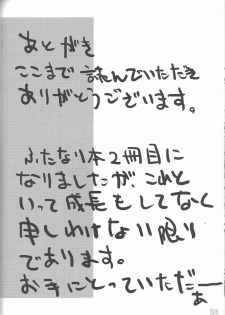 あとがき
ここまで読んでいただき
ありがとうございます。
ふたなり本2冊目に
なりましたが、これと
いって成長もしてなく
申しわけない限り
であります。
お手にとっていただだー
あ